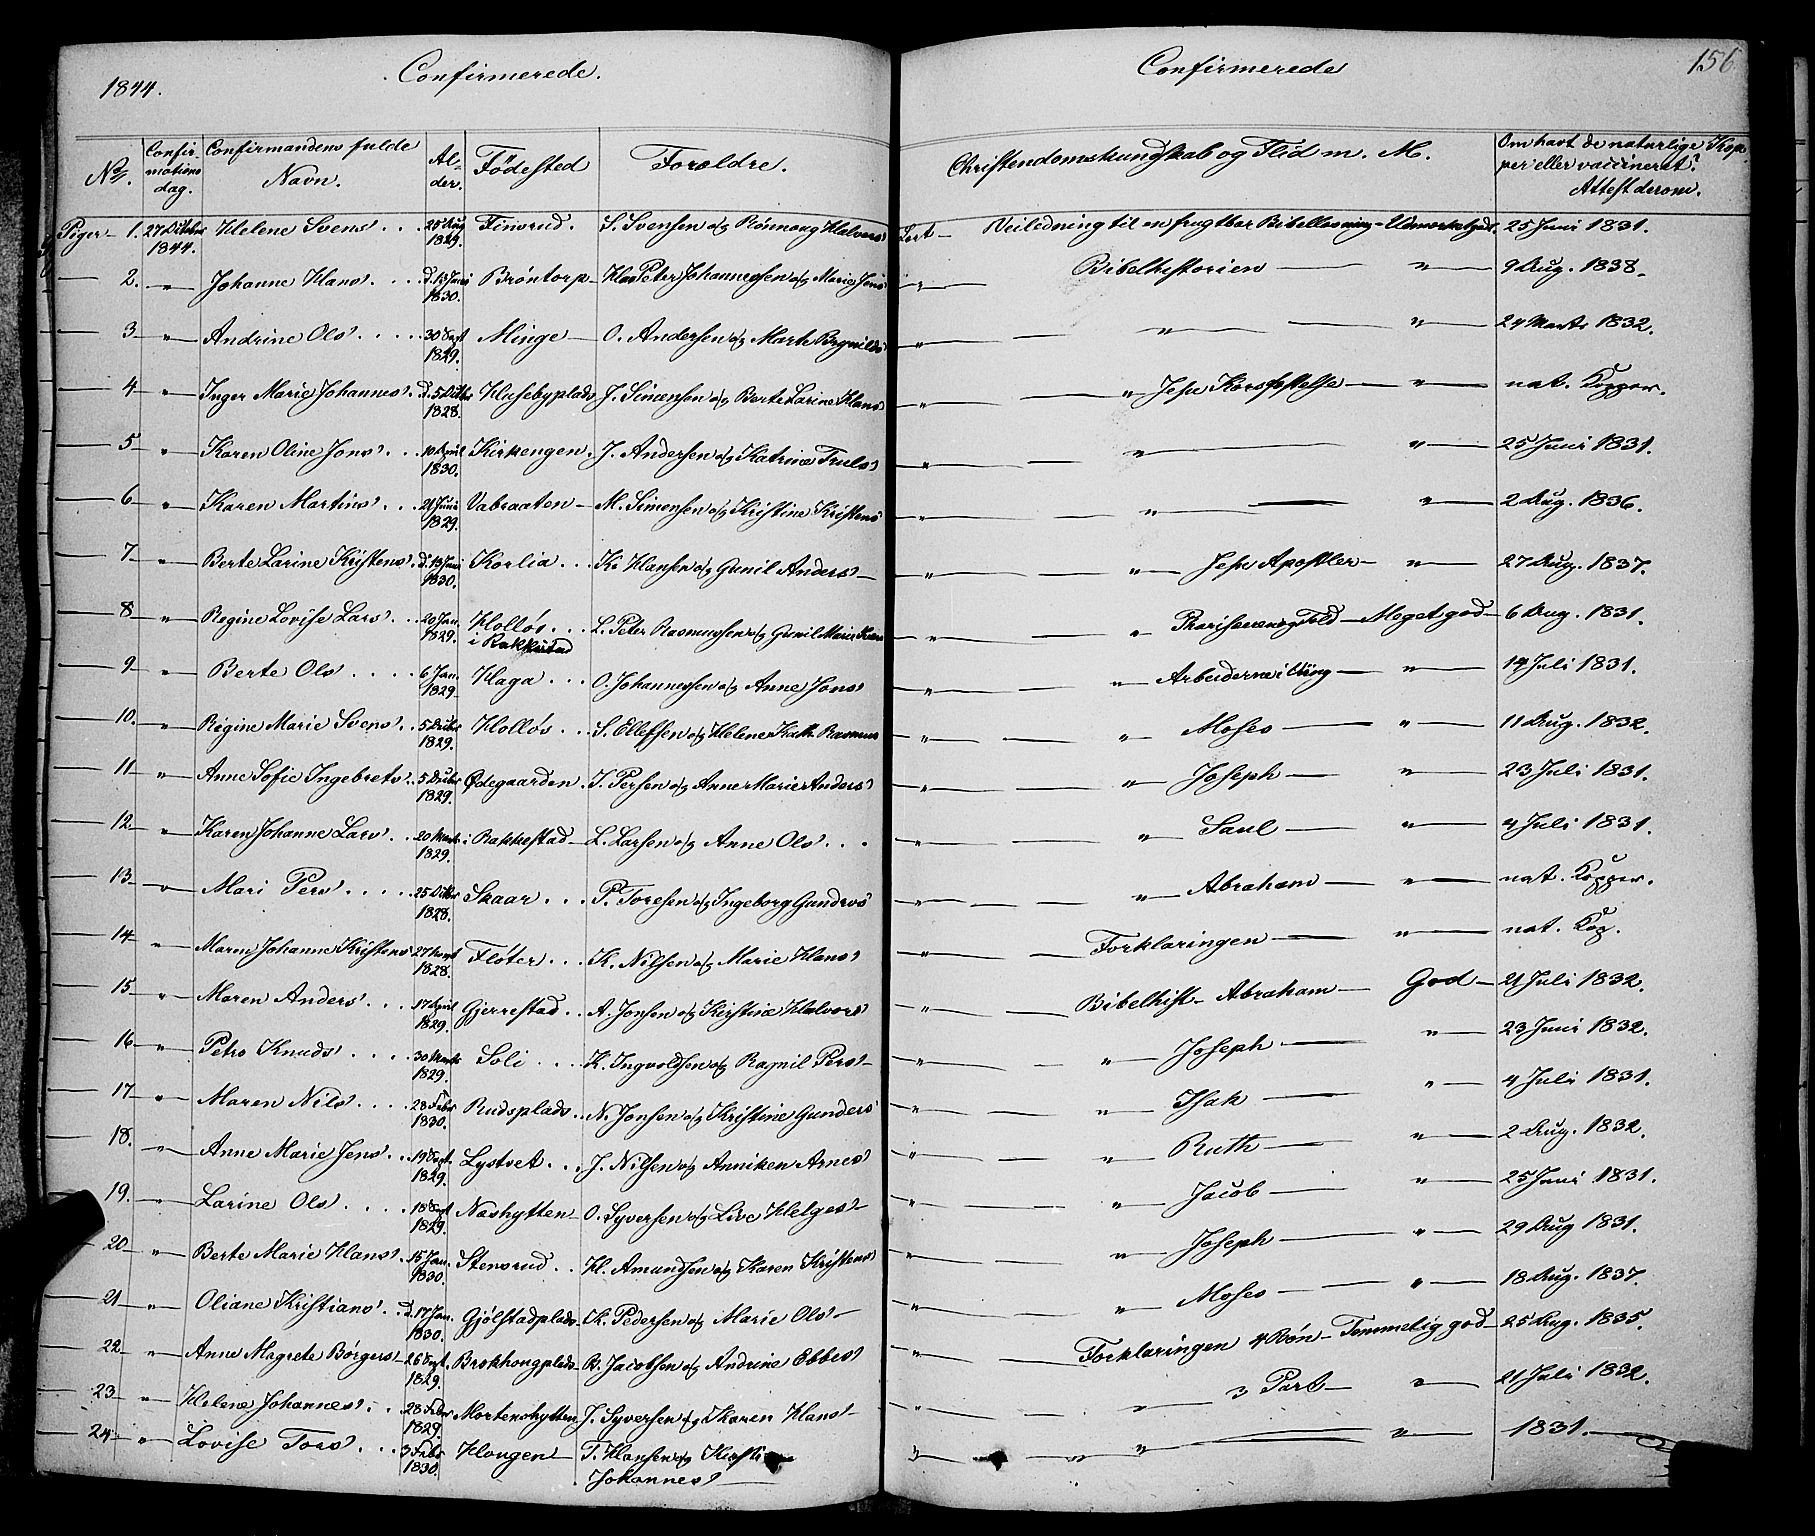 1844.
Confirmerede.
Confirmerede
156
No. Confir-mations dag. Confirmandens fulde Navn. Al-der. Födested Forældre. Christendomskundskab og Flid m. M. Om havt de naturlige Kopper eller vaccineret? Attest derom.
Piger - 1. 27 Octbr 1844. Helene Svens 1829. Finsrud. S. Svensen og Rönnaug Halvors Lært Veiledning til en frugtbar Bibellæsning - 25 Juni 1831.
2. " Johanne Hans. 1830. Bröntorp Hans Peter Johannessen og Marie Jens " Bibelhistorien " 9 Aug. 1838.
3 " Andrine Ols 30 Sept 1829. Minge O. Andersen og Marte " " " 24 Marts 1832.
4 " Inger Marie Johannes. 1828. Husebyplads J. Simensen og Berte Larine Hans " " Jesu Korsfæstelse " nat. Kopper.
5 " Karen Oline Jons 10 April 1830. Kirkengen. J. Andersen og Katrine Truls " " " 25 Juni 1831.
6 " Karen Martins 21 Juni 1829. Vabraaten M. Simensen og Kristine Kristens " " " 2 Aug. 1836.
7 " Berte Larine Kristens. 1830. Korlia Kr Hansen og Gunil Anders " " Jesu Apostler " 27 Aug. 1837.
8 " Regine Lovise Lars 20 Jan. 1829. Hollös i Rakkestad L. Peter Rasmussen og Gunil Marie " " Phariseeren og Told - Meget god 6 Aug. 1831.
9 " Berte Ols 6 Jan. 1829 Haga O. Johannessen og Anne Jons " " Arbeiderne i " 14 Juli 1831.
10. " Regine Marie Svens 1829. Hollös S. Ellefsen og Helene Kath. Rasmus " " Moses " 11 Aug. 1832.
11 " Anne Sofie Ingebrets 1829. Ödegaarden. I. Persen og Anne Marie Anders " " Joseph " 23 Juli 1831.
12 " Karen Johanne Lars 20 Marts 1829. i Rakkestad L. Larsen og Anne Ols " " Saul " 4 Juli 1831.
13 " Mari Pers 25 1828. Skaar P. Toresen og Ingeborg Gundros " " Abraham " nat. Kopper.
14 " Maren Johanne Kristens 27 1828. Flöter K. Nilsen og Marie Hans " Forklaringen " nat. Kop.
15 " Maren Anders 17 April 1829. Gjerrestad A. Jonsen og Kirstine Halvors " Bibelhist - Abraham God 21 Juli 1832.
16 " Petro Knuds 30 Marts 1829. Soli K. Ingvoldsen og Ragnil Pers " " Joseph " 23 Juni 1832.
17 " Maren Nils 28 Febr 1830. Rudsplads N. Jonsen og Kristine Gunders " " Isak " 4 Juli 1831.
18. " Anne Marie Jens 19 Sept. 1829. Lystvet J. Nilsen og Anniken Arnes " " Ruth " 2 Aug. 1832.
19. " Larine Ols 18 Sept 1829. Næshytten O. Syversen og Live Helges " " Jacob " 25 Juni 1831.
20 " Berte Marie Hans 15 Jan. 1830. Stensrud H. Amundsen og Karen Kristens " " Joseph " 29 Aug 1831.
21 " Oliane Kristians d. 17 Jan. 1830. Gjölstadplads K. Pedersen og Marie Ols " " Moses " 18 Aug. 1837.
22 " Anne Magrete Börgers 26 Sept. 1829. Brokhougplads B. Jacobsen og Andrine Ebbes " Forklaringen 4 Bön - Temmelig god 25 Aug. 1835.
23 " Helene Johannes 28 Febr 1829. Mortenshytten J. Syversen og Karen Hans " " 3 Part " 21 Juli 1832.
24 " Lovise Tors 3 Febr 1830. Hougen T. Hansen og Johannes " " " " 1831.